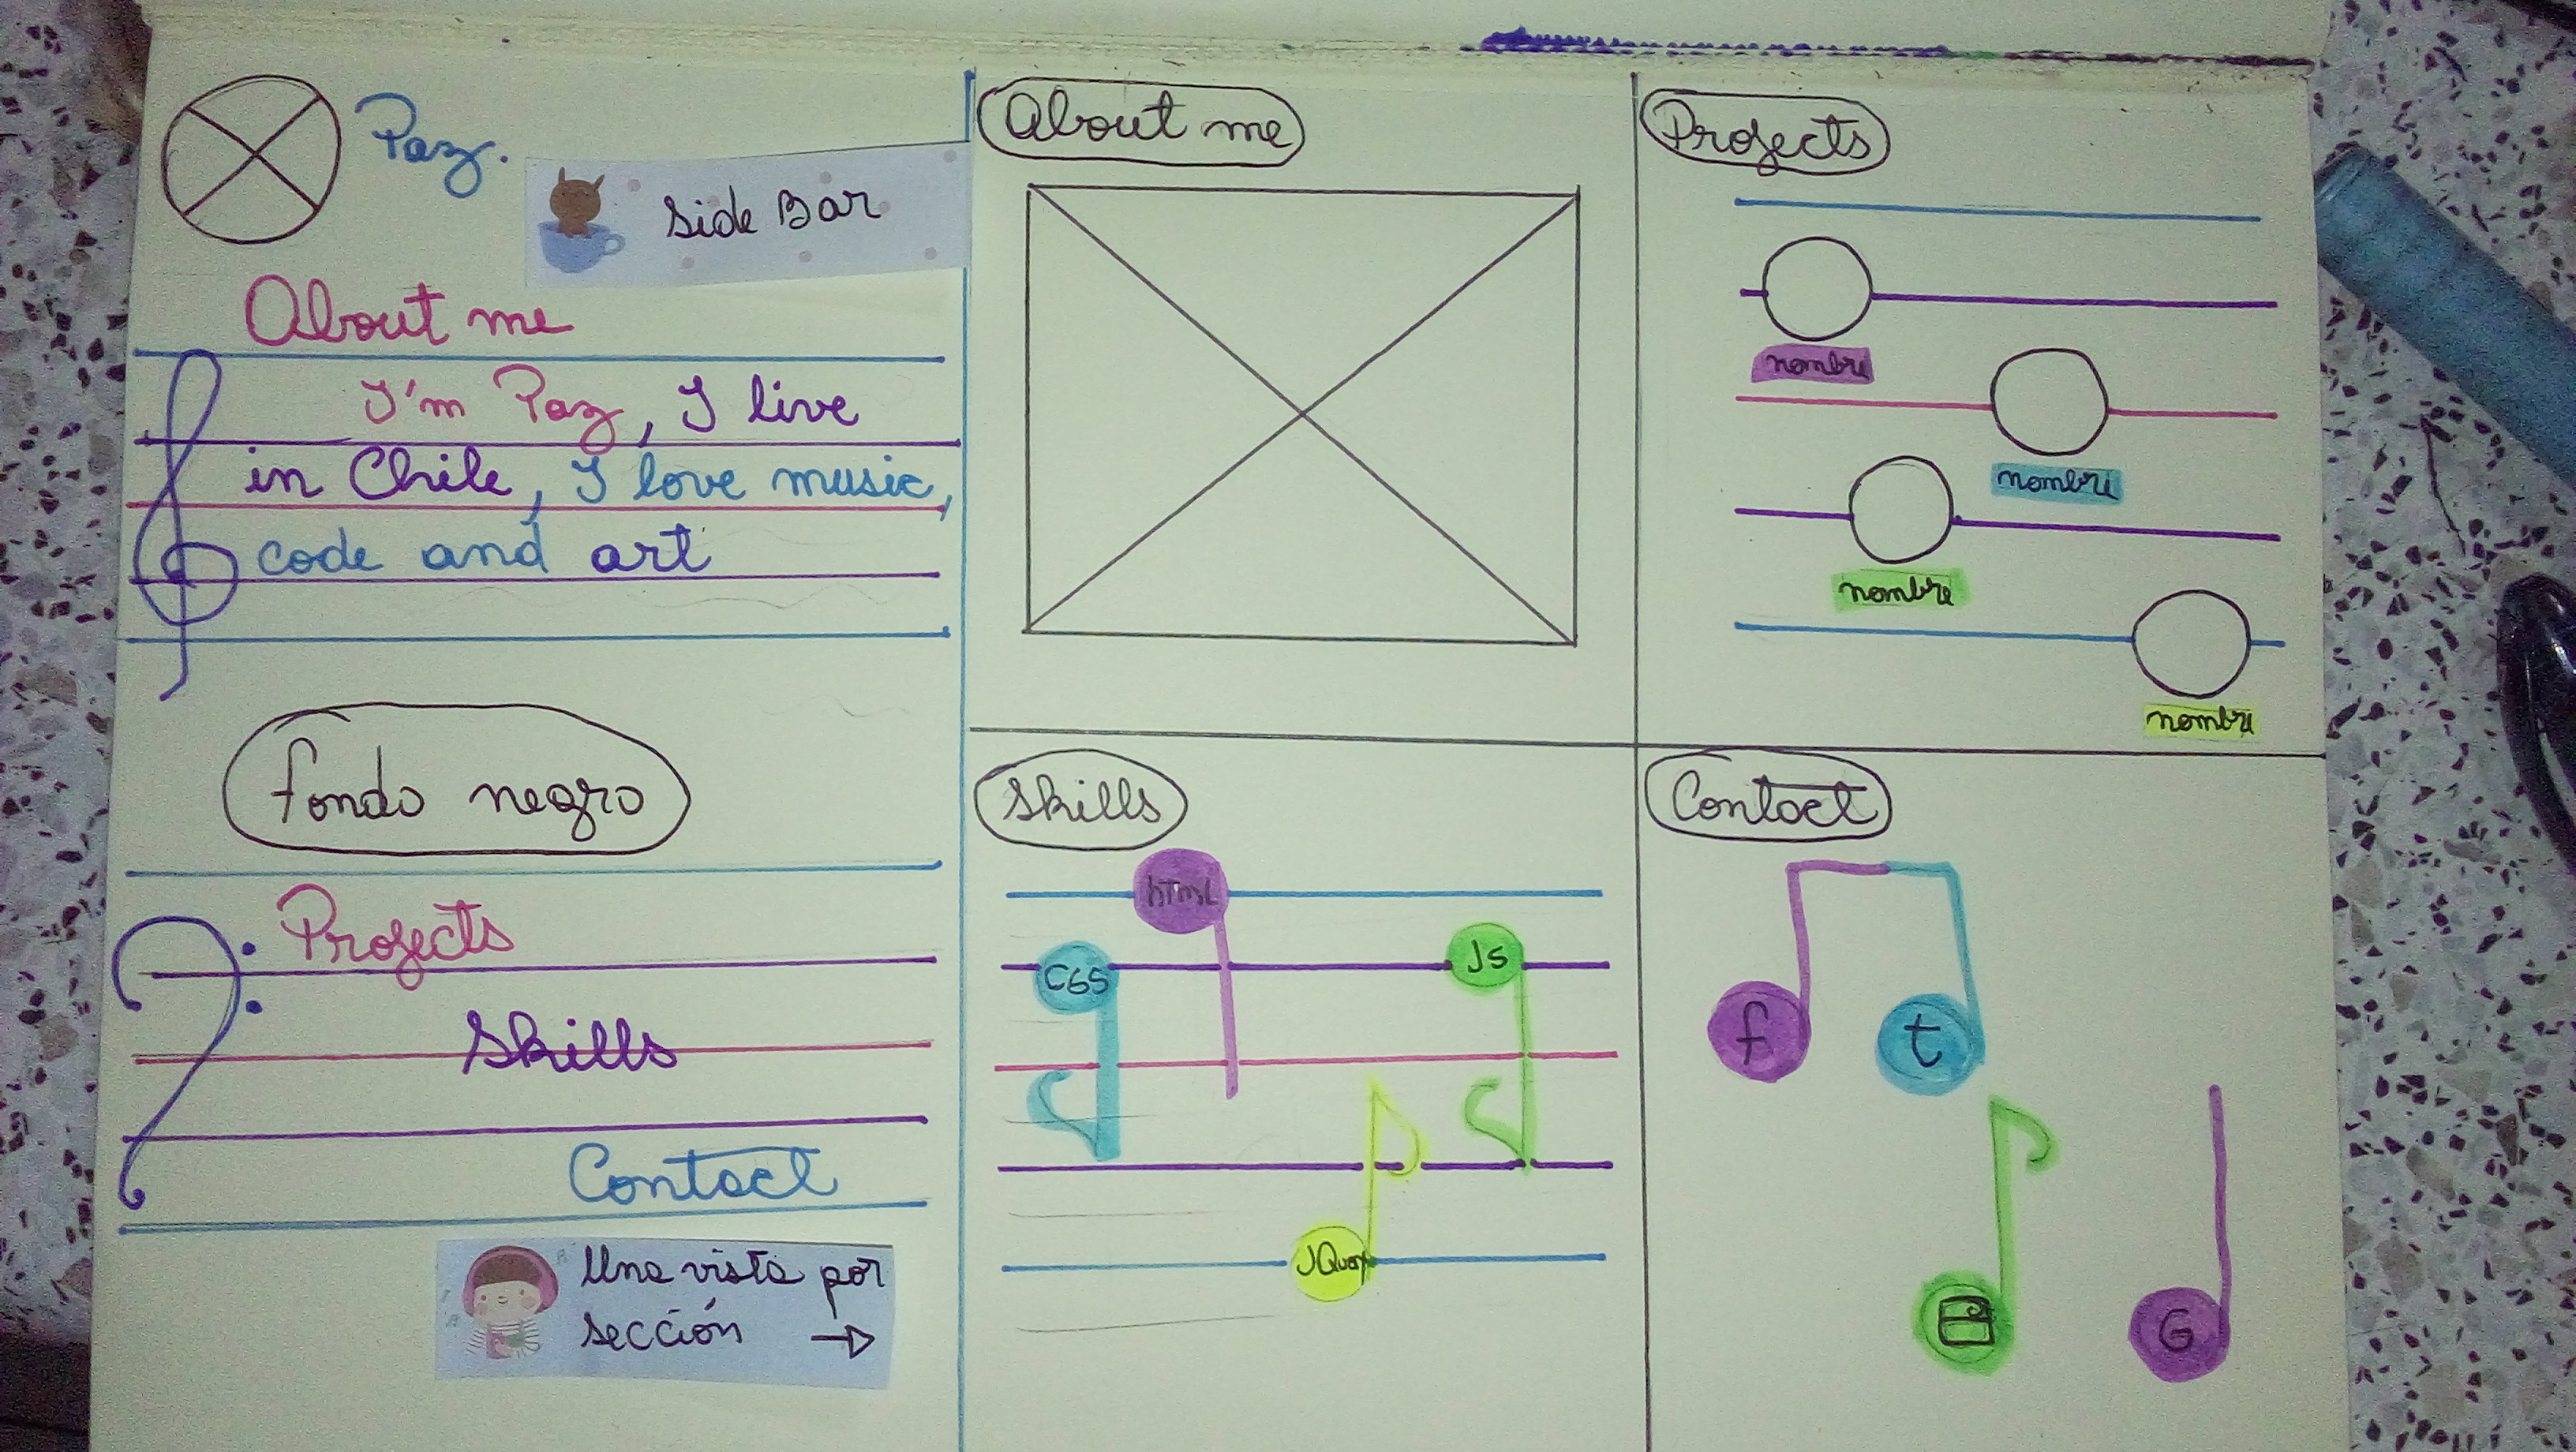 Paz.
Side Bar
About me
I'm Paz, I live
in Chile, I love music,
code and art
fondo negro
Projects
Skills
Contact
Una vista por
sección →
About me
Projects
nombre
nombre
nombre
nombre
Skills
html
CSS
Js
JQuery
Contact
f
t
G